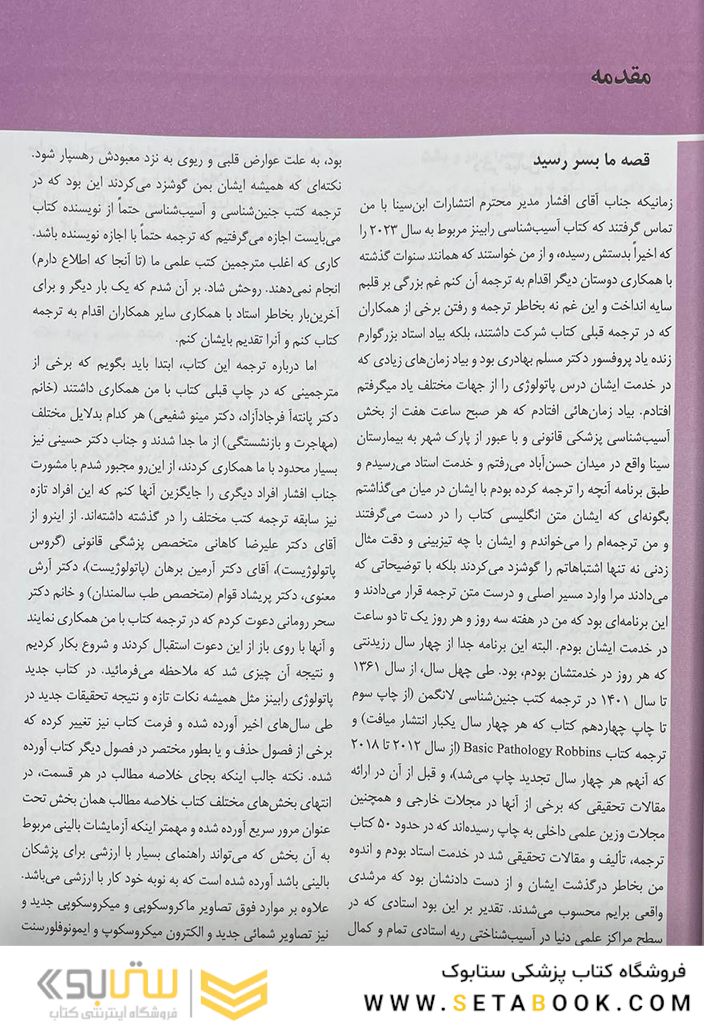 مقدمه
قصه ما بسر رسید
زمانیکه جناب آقای افشار مدیر محترم انتشارات ابن‌سینا با من
تماس گرفتند که کتاب آسیب‌شناسی رابینز مربوط به سال ۲۰۲۳ را
که اخیراً بدستش رسیده، و از من خواستند که همانند سنوات گذشته
با همکاری دوستان دیگر اقدام به ترجمه آن کنم غم بزرگی بر قلبم
سایه انداخت و این غم نه بخاطر ترجمه و رفتن برخی از همکاران
که در ترجمه قبلی کتاب شرکت داشتند، بلکه بیاد استاد بزرگوارم
زنده یاد پروفسور دکتر مسلم بهادری بود و بیاد زمان‌های زیادی که
در خدمت ایشان درس پاتولوژی را از جهات مختلف یاد میگرفتم
افتادم. بیاد زمان‌هائی افتادم که هر صبح ساعت هفت از بخش
آسیب‌شناسی پزشکی قانونی و با عبور از پارک شهر به بیمارستان
سینا واقع در میدان حسن‌آباد می‌رفتم و خدمت استاد می‌رسیدم و
طبق برنامه آنچه را ترجمه کرده بودم با ایشان در میان می‌گذاشتم
بگونه‌ای که ایشان متن انگلیسی کتاب را در دست می‌گرفتند
و من ترجمه‌ام را می‌خواندم و ایشان با چه تیزبینی و دقت مثال
زدنی نه تنها اشتباهاتم را گوشزد می‌کردند بلکه با توضیحاتی که
می‌دادند مرا وارد مسیر اصلی و درست متن ترجمه قرار می‌دادند و
این برنامه‌ای بود که من در هفته سه روز و هر روز یک تا دو ساعت
در خدمت ایشان بودم. البته این برنامه جدا از چهار سال رزیدنتی
که هر روز در خدمتشان بودم، بود. طی چهل سال، از سال ۱۳۶۱
تا سال ۱۴۰۱ در ترجمه کتب جنین‌شناسی لانگمن (از چاپ سوم
تا چاپ چهاردهم کتاب که هر چهار سال یکبار انتشار میافت) و
ترجمه کتاب Basic Pathology Robbins (از سال ۲۰۱۲ تا ۲۰۱۸
که آنهم هر چهار سال تجدید چاپ می‌شد)، و قبل از آن در ارائه
مقالات تحقیقی که برخی از آنها در مجلات خارجی و همچنین
مجلات وزین علمی داخلی به چاپ رسیده‌اند که در حدود ۵۰ کتاب
ترجمه، تألیف و مقالات تحقیقی شد در خدمت استاد بودم و اندوه
من بخاطر درگذشت ایشان و از دست دادنشان بود که مرشدی
واقعی برایم محسوب می‌شدند. تقدیر بر این بود استادی که در
سطح مراکز علمی دنیا در آسیب‌شناختی ریه استادی تمام و کمال
بود، به علت عوارض قلبی و ریوی به نزد معبودش رهسپار شود.
نکته‌ای که همیشه ایشان بمن گوشزد می‌کردند این بود که در
ترجمه کتب جنین‌شناسی و آسیب‌شناسی حتماً از نویسنده کتاب
می‌بایست اجازه می‌گرفتیم که ترجمه حتماً با اجازه نویسنده باشد.
کاری که اغلب مترجمین کتب علمی ما (تا آنجا که اطلاع دارم)
انجام نمی‌دهند. روحش شاد. بر آن شدم که یک بار دیگر و برای
آخرین‌بار بخاطر استاد با همکاری سایر همکاران اقدام به ترجمه
کتاب کنم و آنرا تقدیم بایشان کنم.
اما درباره ترجمه این کتاب، ابتدا باید بگویم که برخی از
مترجمینی که در چاپ قبلی کتاب با من همکاری داشتند (خانم
دکتر پانته‌آ فرجادآزاد، دکتر مینو شفیعی) هر کدام بدلایل مختلف
(مهاجرت و بازنشستگی) از ما جدا شدند و جناب دکتر حسینی نیز
بسیار محدود با ما همکاری کردند، از این‌رو مجبور شدم با مشورت
جناب افشار افراد دیگری را جایگزین آنها کنم که این افراد تازه
نیز سابقه ترجمه کتب مختلف را در گذشته داشته‌اند. از اینرو از
آقای دکتر علیرضا کاهانی متخصص پزشگی قانونی (گروس
پاتولوژیست)، آقای دکتر آرمین برهان (پاتولوژیست)، دکتر آرش
معنوی، دکتر پریشاد قوام (متخصص طب سالمندان) و خانم دکتر
سحر رومانی دعوت کردم که در ترجمه کتاب با من همکاری نمایند
و آنها با روی باز از این دعوت استقبال کردند و شروع بکار کردیم
و نتیجه آن چیزی شد که ملاحظه می‌فرمائید. در کتاب جدید
پاتولوژی رابینز مثل همیشه نکات تازه و نتیجه تحقیقات جدید در
طی سال‌های اخیر آورده شده و فرمت کتاب نیز تغییر کرده که
برخی از فصول حذف و یا بطور مختصر در فصول دیگر کتاب آورده
شده. نکته جالب اینکه بجای خلاصه مطالب در هر قسمت، در
انتهای بخش‌های مختلف کتاب خلاصه مطالب همان بخش تحت
عنوان مرور سریع آورده شده و مهمتر اینکه آزمایشات بالینی مربوط
به آن بخش که می‌تواند راهنمای بسیار با ارزشی برای پزشکان
بالینی باشد آورده شده است که به نوبه خود کار با ارزشی می‌باشد.
علاوه بر موارد فوق تصاویر ماکروسکوپی و میکروسکوپی جدید و
نیز تصاویر شمائی جدید و الکترون میکروسکوپ و ایمونوفلورسنت
فروشگاه کتاب پزشکی ستابوک
WWW.SETABOOK.COM
ستابوک
فروشگاه اینترنتی کتاب